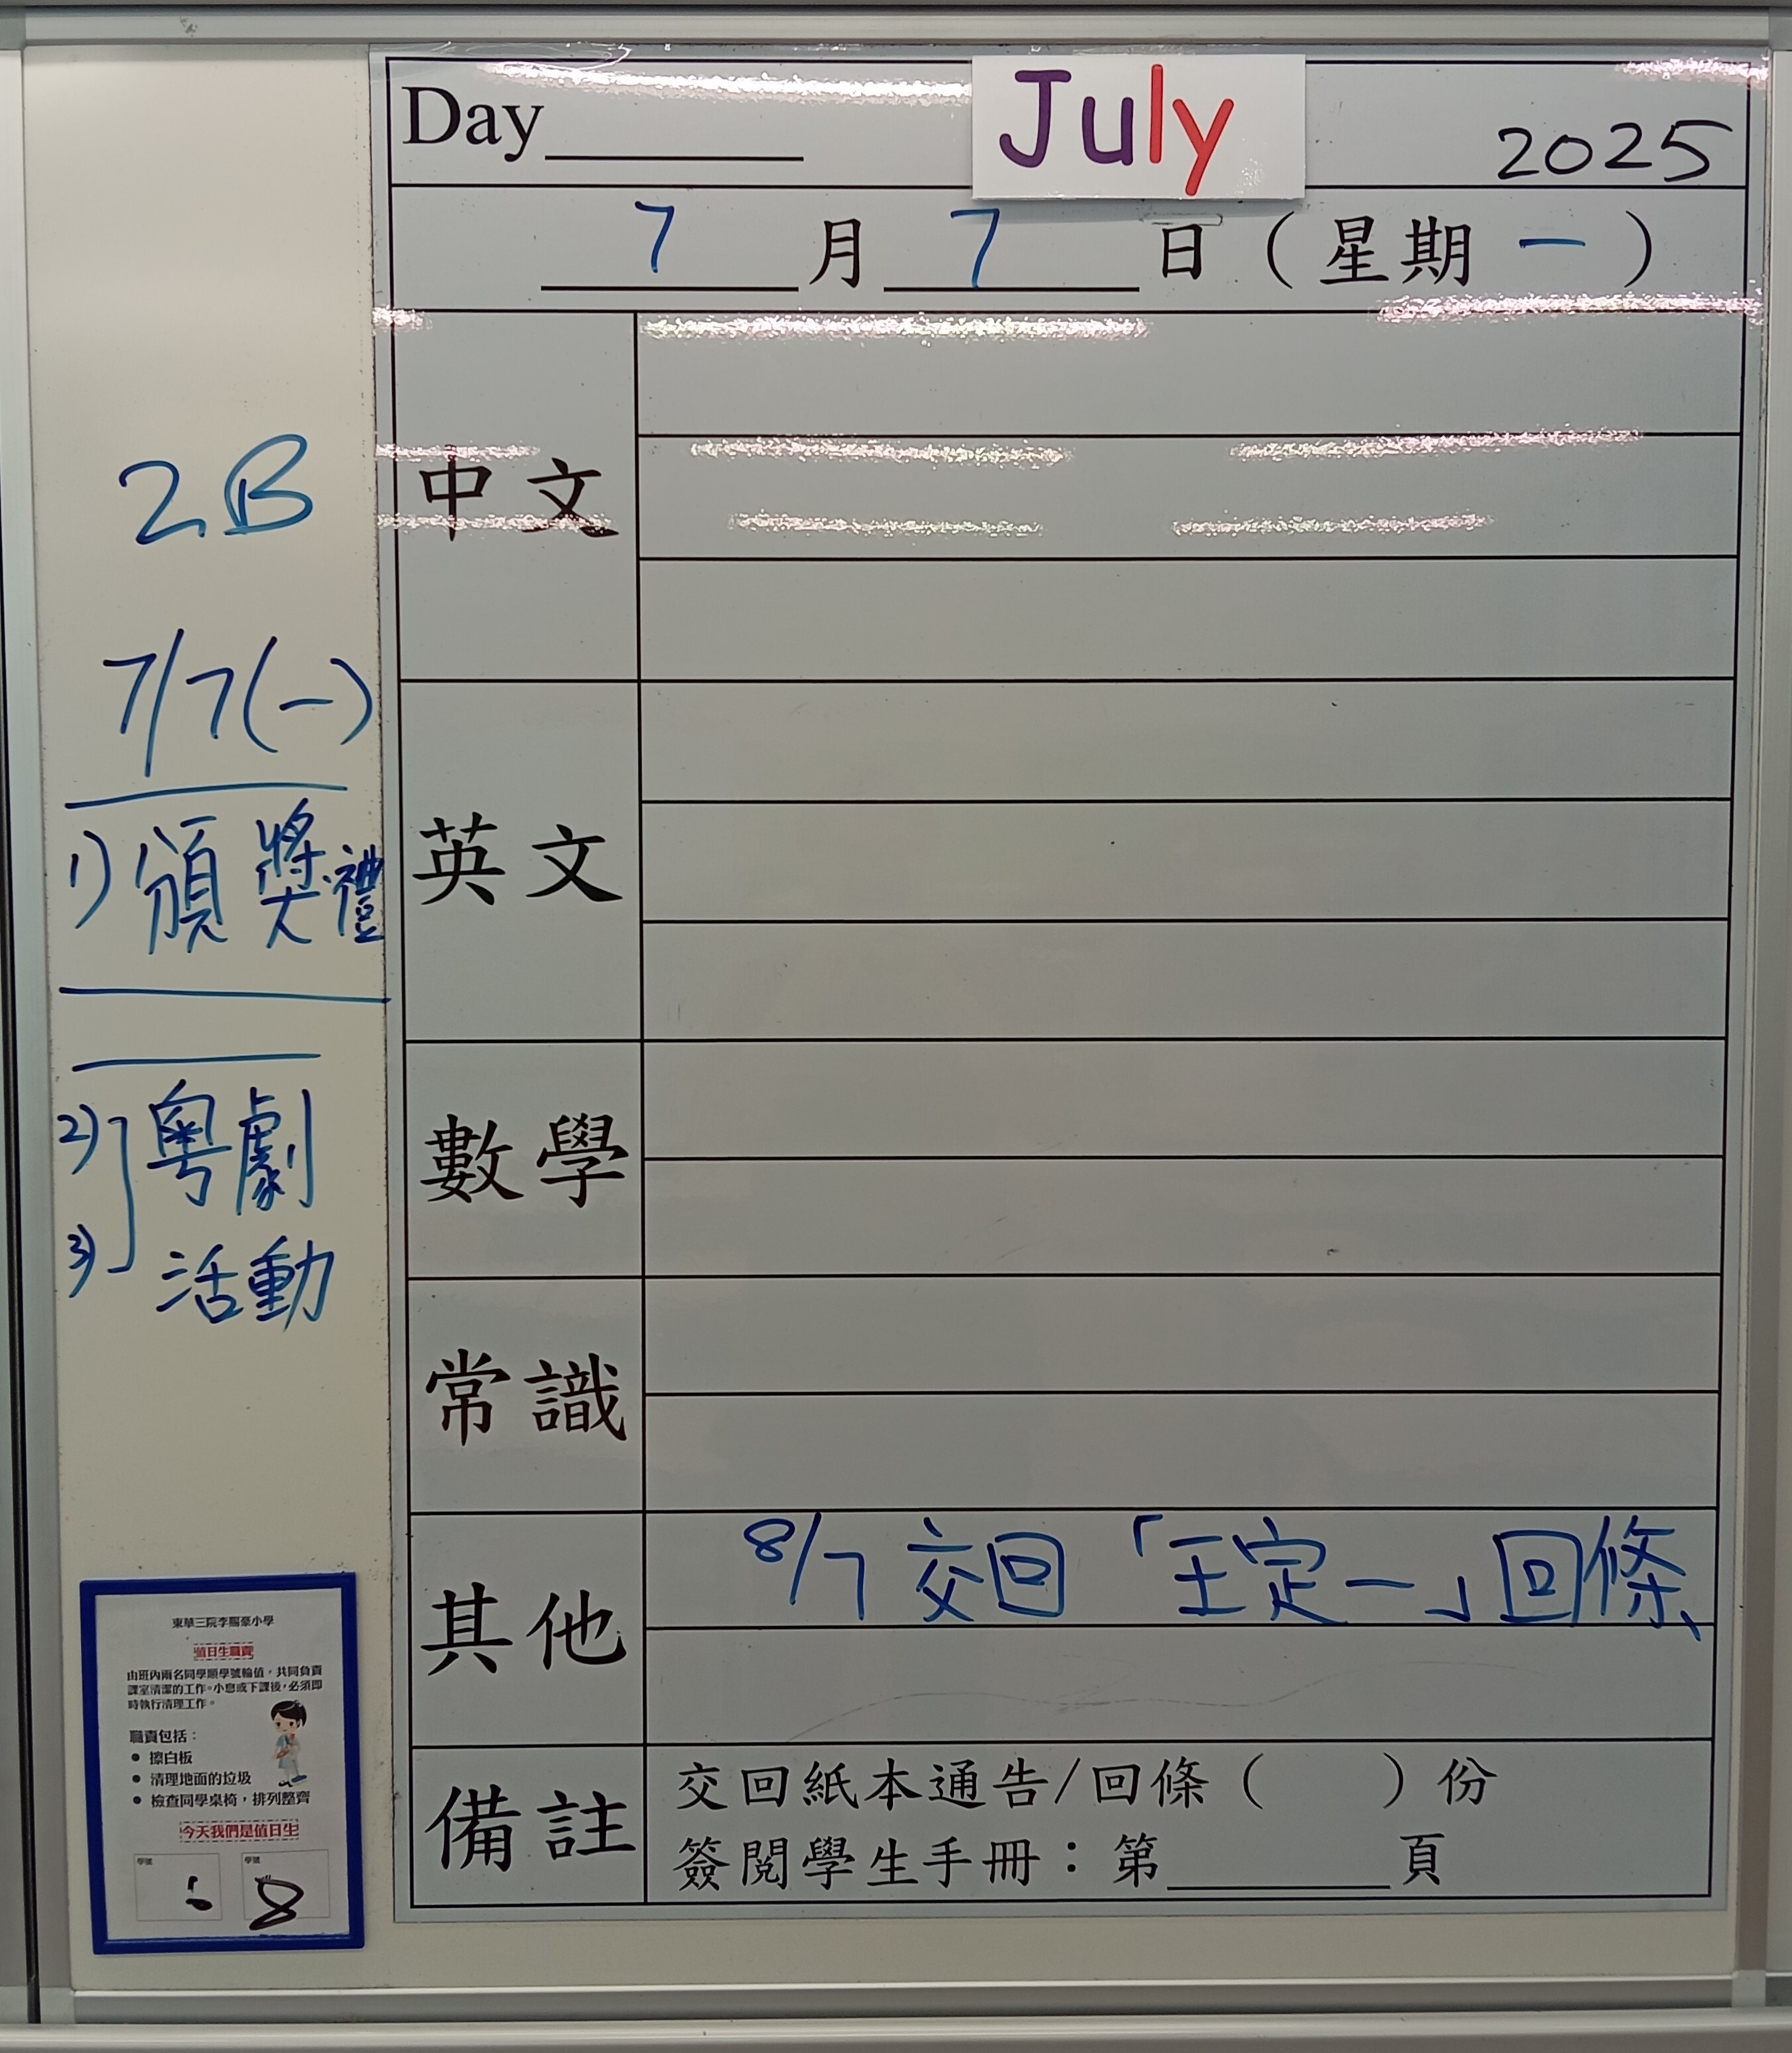 Day
July
2025
7月7日（星期一）
2B
7/7(一)
1) 頒獎禮
2) 粵劇
3) 活動
中文
英文
數學
常識
其他
8/7 交回「王定一」回條
備註
交回紙本通告/回條（ ）份
簽閱學生手冊：第 頁
東華三院李賜豪小學
值日生職責
由班內兩名同學順學號輪值，共同負責
課室清潔的工作。小息或下課後，必須即
時執行清理工作。
職責包括：
● 擦白板
● 清理地面的垃圾
● 檢查同學桌椅，排列整齊
今天我們是值日生
學號 學號
8